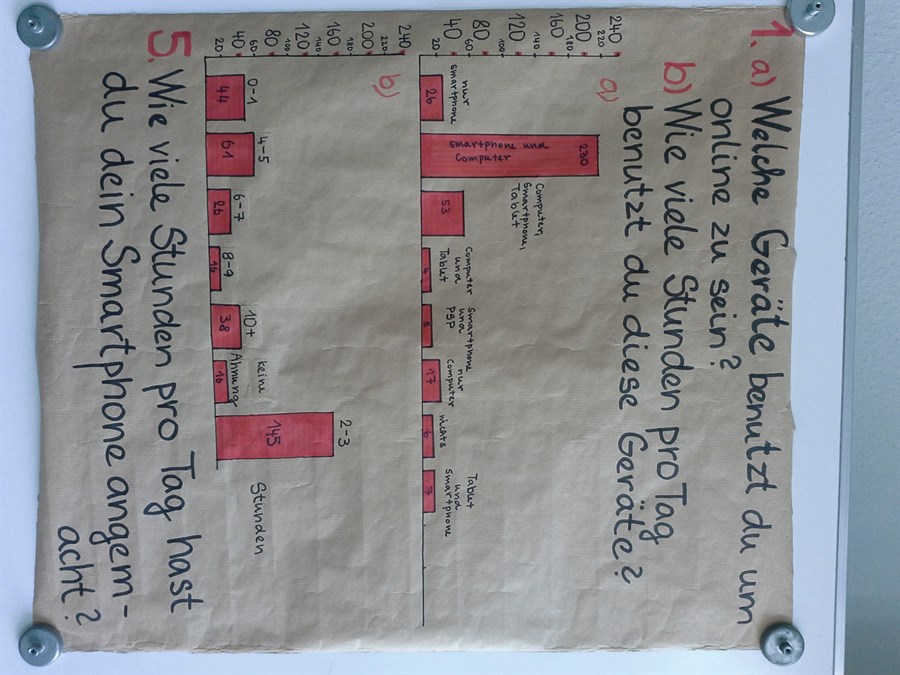 1. a) Welche Geräte benutzt du um
online zu sein?
b) Wie viele Stunden pro Tag
benutzt du diese Geräte?
a)
240
220
200
180
160
140
120
100
80
60
40
20
nur
smartphone
26
230
smartphone und
Computer
Computer,
smartphone,
Tablet
53
Computer
und
Tablet
4
Smartphone
und
PSP
nur
Computer
17
nichts
6
Tablet
und
smartphone
7
b)
240
220
200
180
160
140
120
100
80
60
40
20
0-1
44
4-5
61
6-7
26
8-9
16
10+
38
keine
Ahnung
16
2-3
145
Stunden
5. Wie viele Stunden pro Tag hast
du dein Smartphone angem-
acht?